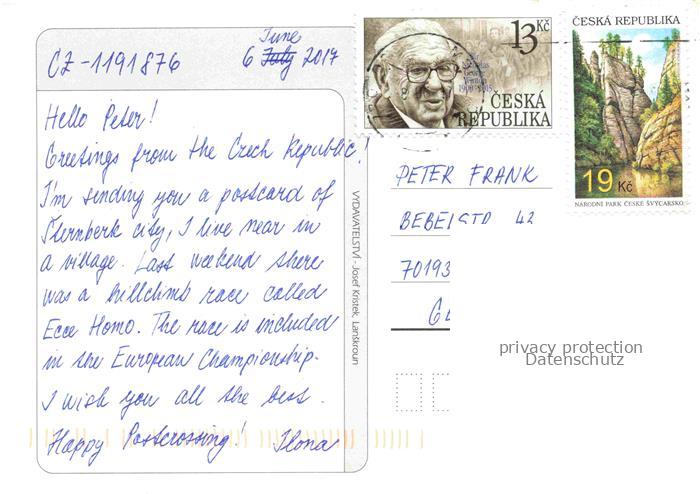 CZ-1191876
June
6 July 2017
Hello Peter!
Greetings from the Czech Republic!
I'm sending you a postcard of
Šternberk city, I live near in
a village. Last weekend there
was a hillclimb race called
Ecce Homo. The race is included
in the European Championship.
I wish you all the best.
Happy Postcrossing! Ilona
VYDAVATELSTVÍ - Josef Kristek, Lanškroun
13 Kč
Nicholas
George
Winton
1909-2015
ČESKÁ
REPUBLIKA
ČESKÁ REPUBLIKA
19 Kč
NÁRODNÍ PARK ČESKÉ ŠVÝCARSKO
PETER FRANK
42
70193
privacy protection
Datenschutz